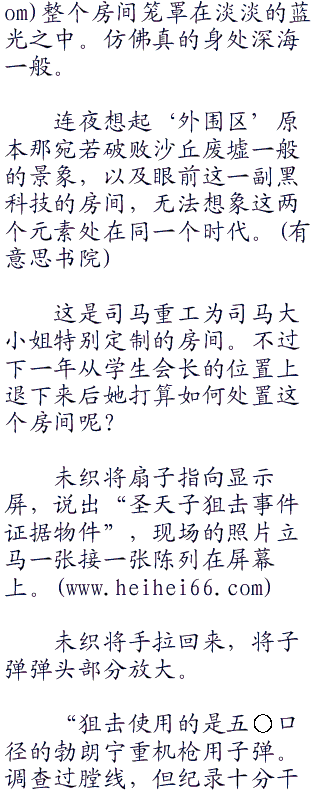 om)整个房间笼罩在淡淡的蓝
光之中。仿佛真的身处深海
一般。
连夜想起‘外围区’原
本那宛若破败沙丘废墟一般
的景象，以及眼前这一副黑
科技的房间，无法想象这两
个元素处在同一个时代。(有
意思书院)
这是司马重工为司马大
小姐特别定制的房间。不过
下一年从学生会长的位置上
退下来后她打算如何处置这
个房间呢？
未织将扇子指向显示
屏，说出“圣天子狙击事件
证据物件”，现场的照片立
马一张接一张陈列在屏幕
上。(www.heihei66.com)
未织将手拉回来，将子
弹弹头部分放大。
“狙击使用的是五〇口
径的勃朗宁重机枪用子弹。
调查过膛线，但纪录十分干